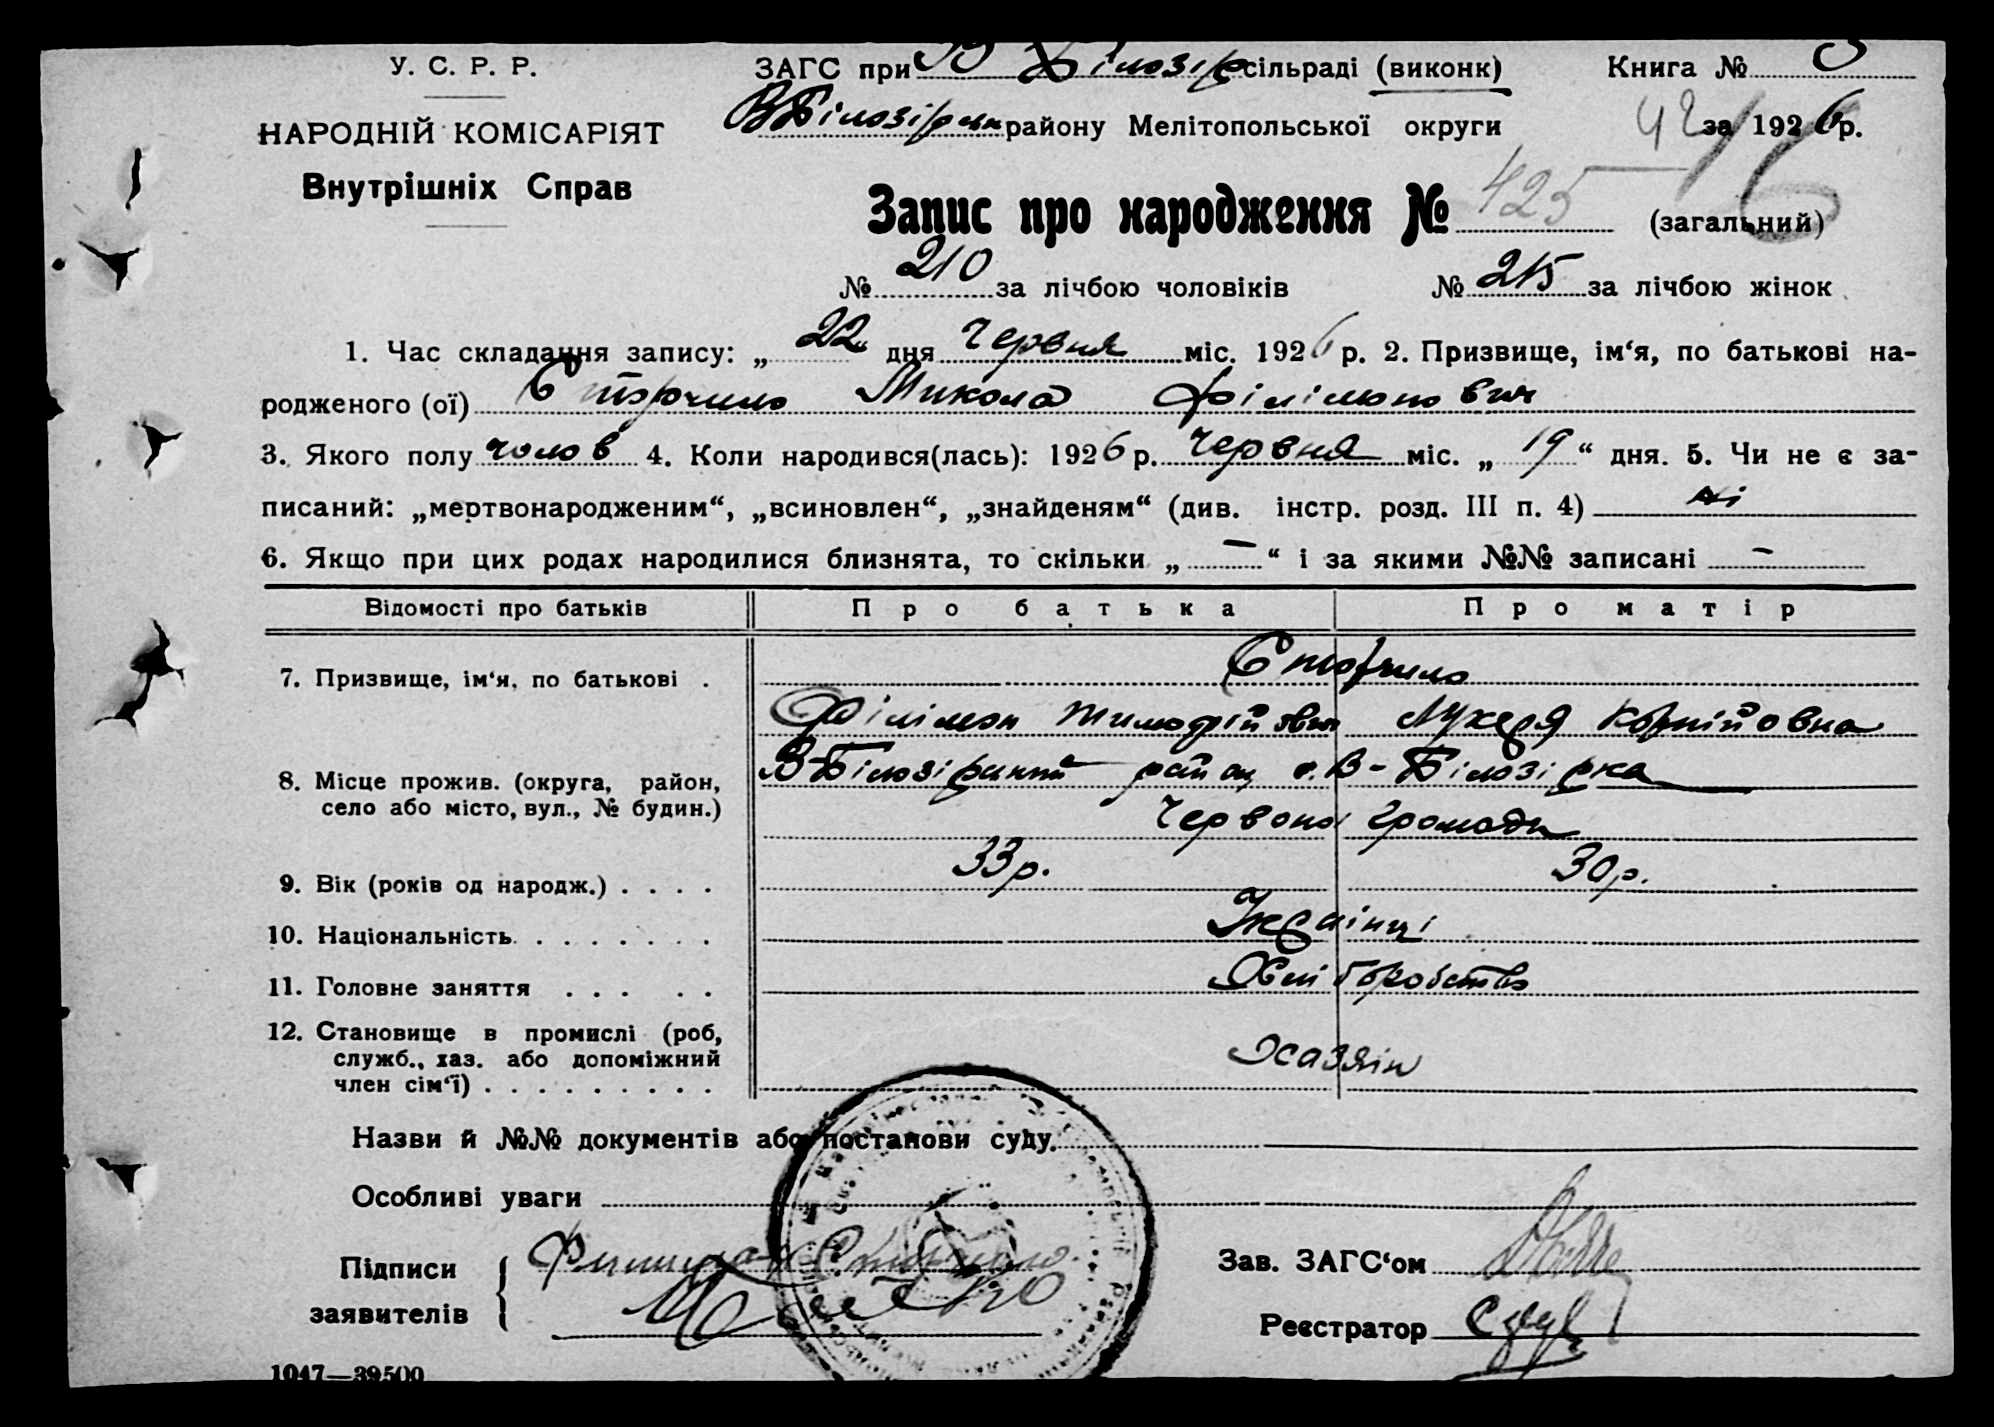 У. С. Р. Р.
НАРОДНІЙ КОМІСАРІЯТ
Внутрішніх Справ
ЗАГС при В Білозір сільраді (виконк)
В Білозірськ району Мелітопольської округи
Книга №
42
за 1926 р.
Запис про народження № 425 (загальний)
№ 210 за лічбою чоловіків № 215 за лічбою жінок
1. Час складання запису: „22“ дня Червня міс. 1926 р. 2. Призвище, ім‘я, по батькові на-
родженого (ої) Сторчило Микола Філімонович
3. Якого полу чолов 4. Коли народився(лась): 1926 р. Червня міс. „19“ дня. 5. Чи не є за-
писаний: „мертвонародженим“, „всиновлен“, „знайденям“ (див. інстр. розд. III п. 4) ні
6. Якщо при цих родах народилися близнята, то скільки „ — “ і за якими №№ записані —
Відомості про батьків Про батька Про матір
7. Призвище, ім‘я, по батькові . Сторчило
Філімон Тимофійович Лукеря Корнійовна
8. Місце прожив. (округа, район, село або місто, вул., № будин.) В-Білозірський район с. В-Білозірка
Червоної громади
9. Вік (років од народж.) . . . . 33 р. 30 р.
10. Національність . . . . . . . Українці
11. Головне заняття . . . . . Хліборобство
12. Становище в промислі (роб, служб., хаз. або допоміжний член сім‘ї) . . . . . . . . . Хазяїн
Назви й №№ документів або постанови суду.
Особливі уваги
Підписи заявителів Сторчило
Зав. ЗАГС‘ом
Реєстратор
1047—39500